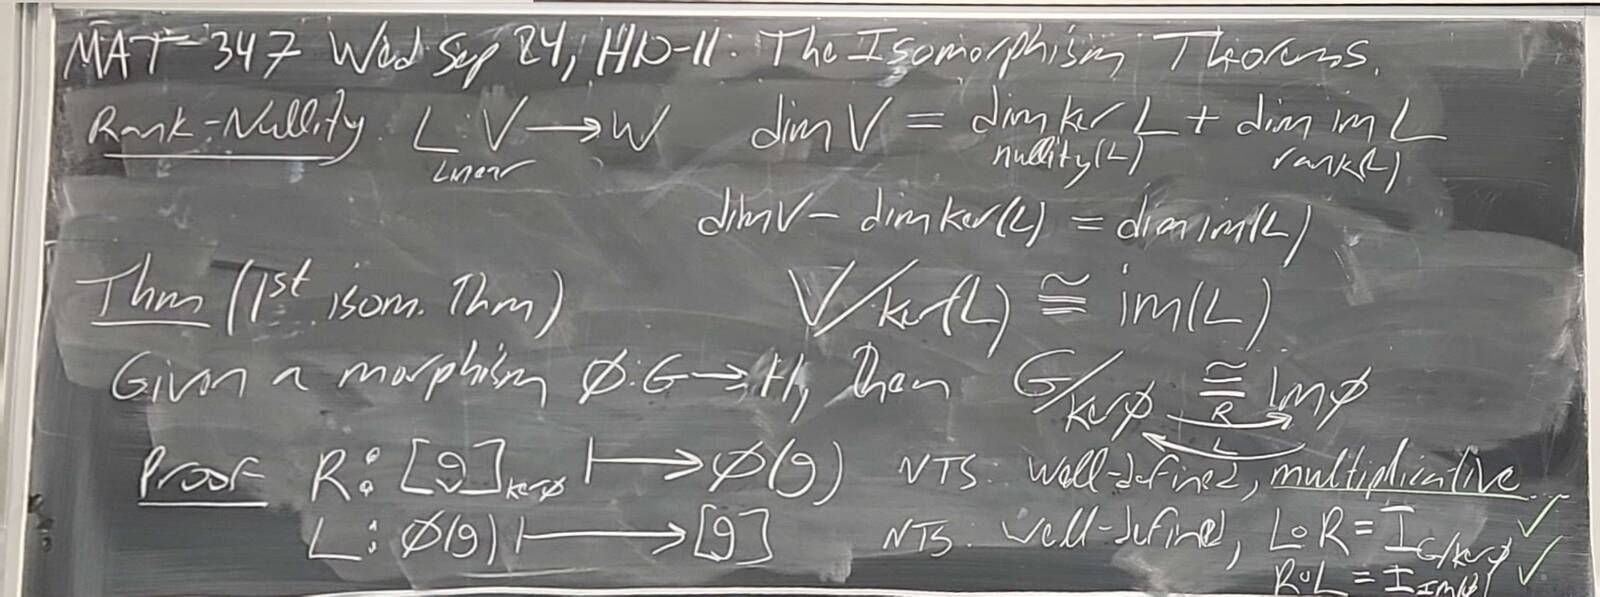 MAT-347 Wed Sep 24, H10-11: The Isomorphism Theorems.
Rank-Nullity. L: V → W dim V = dim ker L + dim im L
Linear nullity(L) rank(L)
dim V - dim ker(L) = dim im(L)
Thm (1st isom. Thm) V/ker(L) ≅ im(L)
Given a morphism ø: G → H, then G/kerø ≅ Imø
R
L
Proof R: [g]kerø ↦ ø(g) NTS: well-defined, multiplicative...
L: ø(g) ↦ [g] NTS: well-defined, L∘R = I G/kerø ✓
R∘L = I Im(ø) ✓